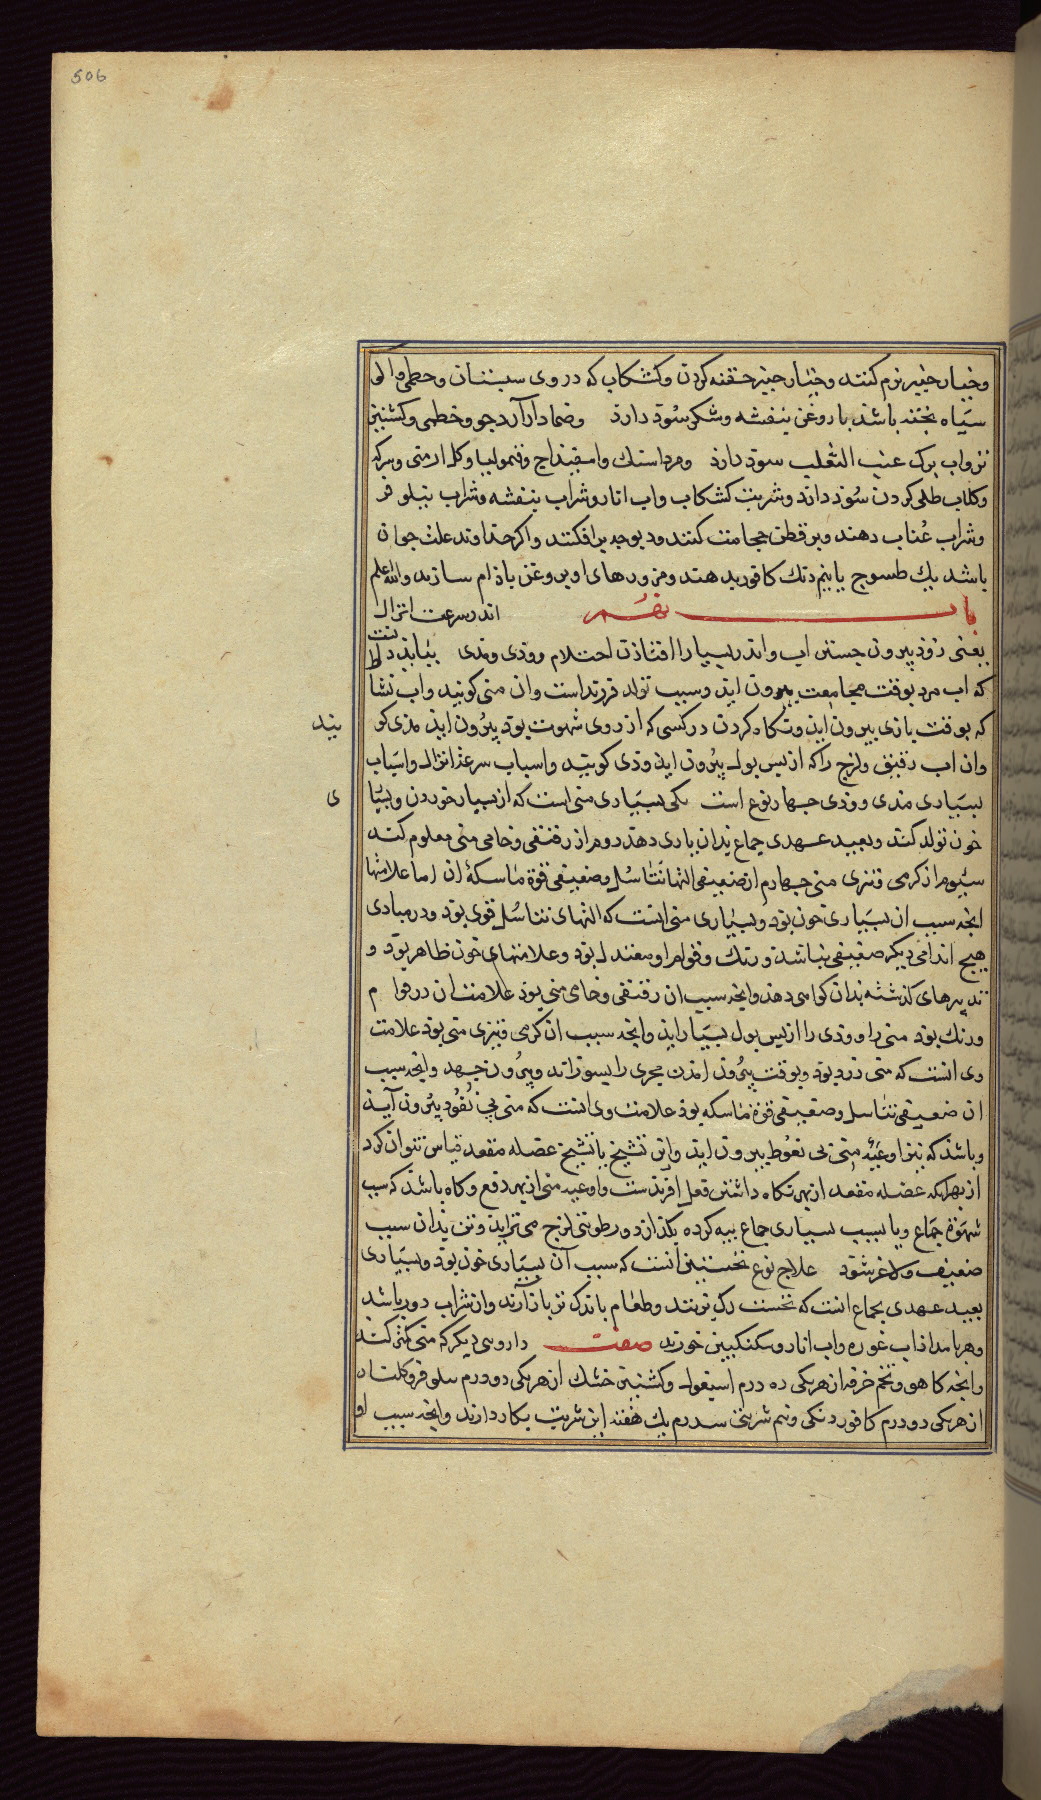 506
وخیار خیبر نرم کنند وخیار چنبر حقنه کردن وکشکاب که در وی سبستان وخطمی والی
سیاه پخته باشذ با روغن بنفشه وشکر سوذ دارذ وضماد از آرد جو وخطمی وکشنیز
تر واب برک عنب الثعلب سوذ دارذ ومرداسنک واسفیداج وقیمولیا وکل ارمنی وسرکه
وکلاب طلی کردن سوذ دارد وشربت کشکاب واب انار وشراب بنفشه وشراب نیلوفر
وشراب عناب دهند وبر قطن حجامت کنند ودیوچه برافکنند واکر خداوند علت جوان
باشد یک طسوج یا نیم دنک کافور بدهند ومزورهای او بروغن باذام سازند والله اعلم
باب نهم اندر سرعت انزال
یعنی زوذ بیرون جستن اب واندر بسیار افتاذن احتلام وودی ومذی بباید دانست
که اب مرد بوقت مجامعت بیرون ایذ وسبب تولد فرزند است وان منی کویند واب نشاط
که بوقت بازی بیرون ایذ ونکاه کردن در کسی که از روی شهوت بوذ بیرون ایذ مذی کویند
وان اب رقیق ولزج را که از پس بول بیرون ایذ ودی کویند واسباب سرعة انزال واسباب
بسیاری مذی وودی چهار نوع است یکی بسیاری منی است که از بسیار خوردن وبسیاری
خون تولد کند وبعید عهدی جماع بذان یاری دهد دوم از رقیقی وخامی منی معلوم کند
سیوم از کرمی وتیزی منی چهارم از ضعیفی التهای تناسل وضعیفی قوة ماسکهٔ ان اما علامتها
انچه سبب ان بسیاری خون بوذ وبسیاری منی انست که التهای تناسل قوی بوذ ودر مبادی
هیچ اندامی دیکر ضعیفی نباشد ورنک وقوام او معتدل بوذ وعلامتهای خون ظاهر بوذ و
تدبیرهای کذشته بذان کواهی دهذ وانچه سبب ان رقیقی وخامی منی بوذ علامت ان در قوام
ورنک بوذ منی را وودی را از پس بول بسیار ایذ وانچه سبب ان کرمی وتیزی منی بوذ علامت
وی انست که منی زرد بوذ وبوقت بیرون امذن مجری را بسوزاند وبیرون جهد وانچه سبب
ان ضعیفی تناسل وضعیفی قوة ماسکه بوذ علامت وی انست که منی بی نعوذ بیرون آیذ
وباشذ که بتر اوعیه منی بی نعوظ بیرون ایذ واین تشنج با تشنج عضله مقعد قیاس نتوان کرد
از بهر انکه عضله مقعد از بهر نکاه داشتن ثفل افریذست واوعیه منی از بهر دفع وکاه باشذ که سبب
شهوة جماع ویا بسبب بسیاری جماع پیه کرده بکذازد ورطوبتی لزج می تزایذ وتن بذان سبب
ضعیف ولاغر شوذ علاج نوع نخستین انست که سبب آن بسیاری خون بوذ وبسیاری
بعید عهدی بجماع انست که نخست رک بزنند وطعام باندک تر باز آرند واز شراب دور باشد
وهر بامداذ اب غوره واب انار وسکنکبین خورند صفت داروی دیکر که منی کمتر کند
رانجه کاهو وتخم خرفه از هر یکی ده درم اسبغول وکشنیز خشک از هر یکی دو درم نیلوفر وکلنار
از هر یکی دو درم کافور دنکی ونیم شربتی سه درم یک هفته این شربت بکار دارند وانچه سبب او